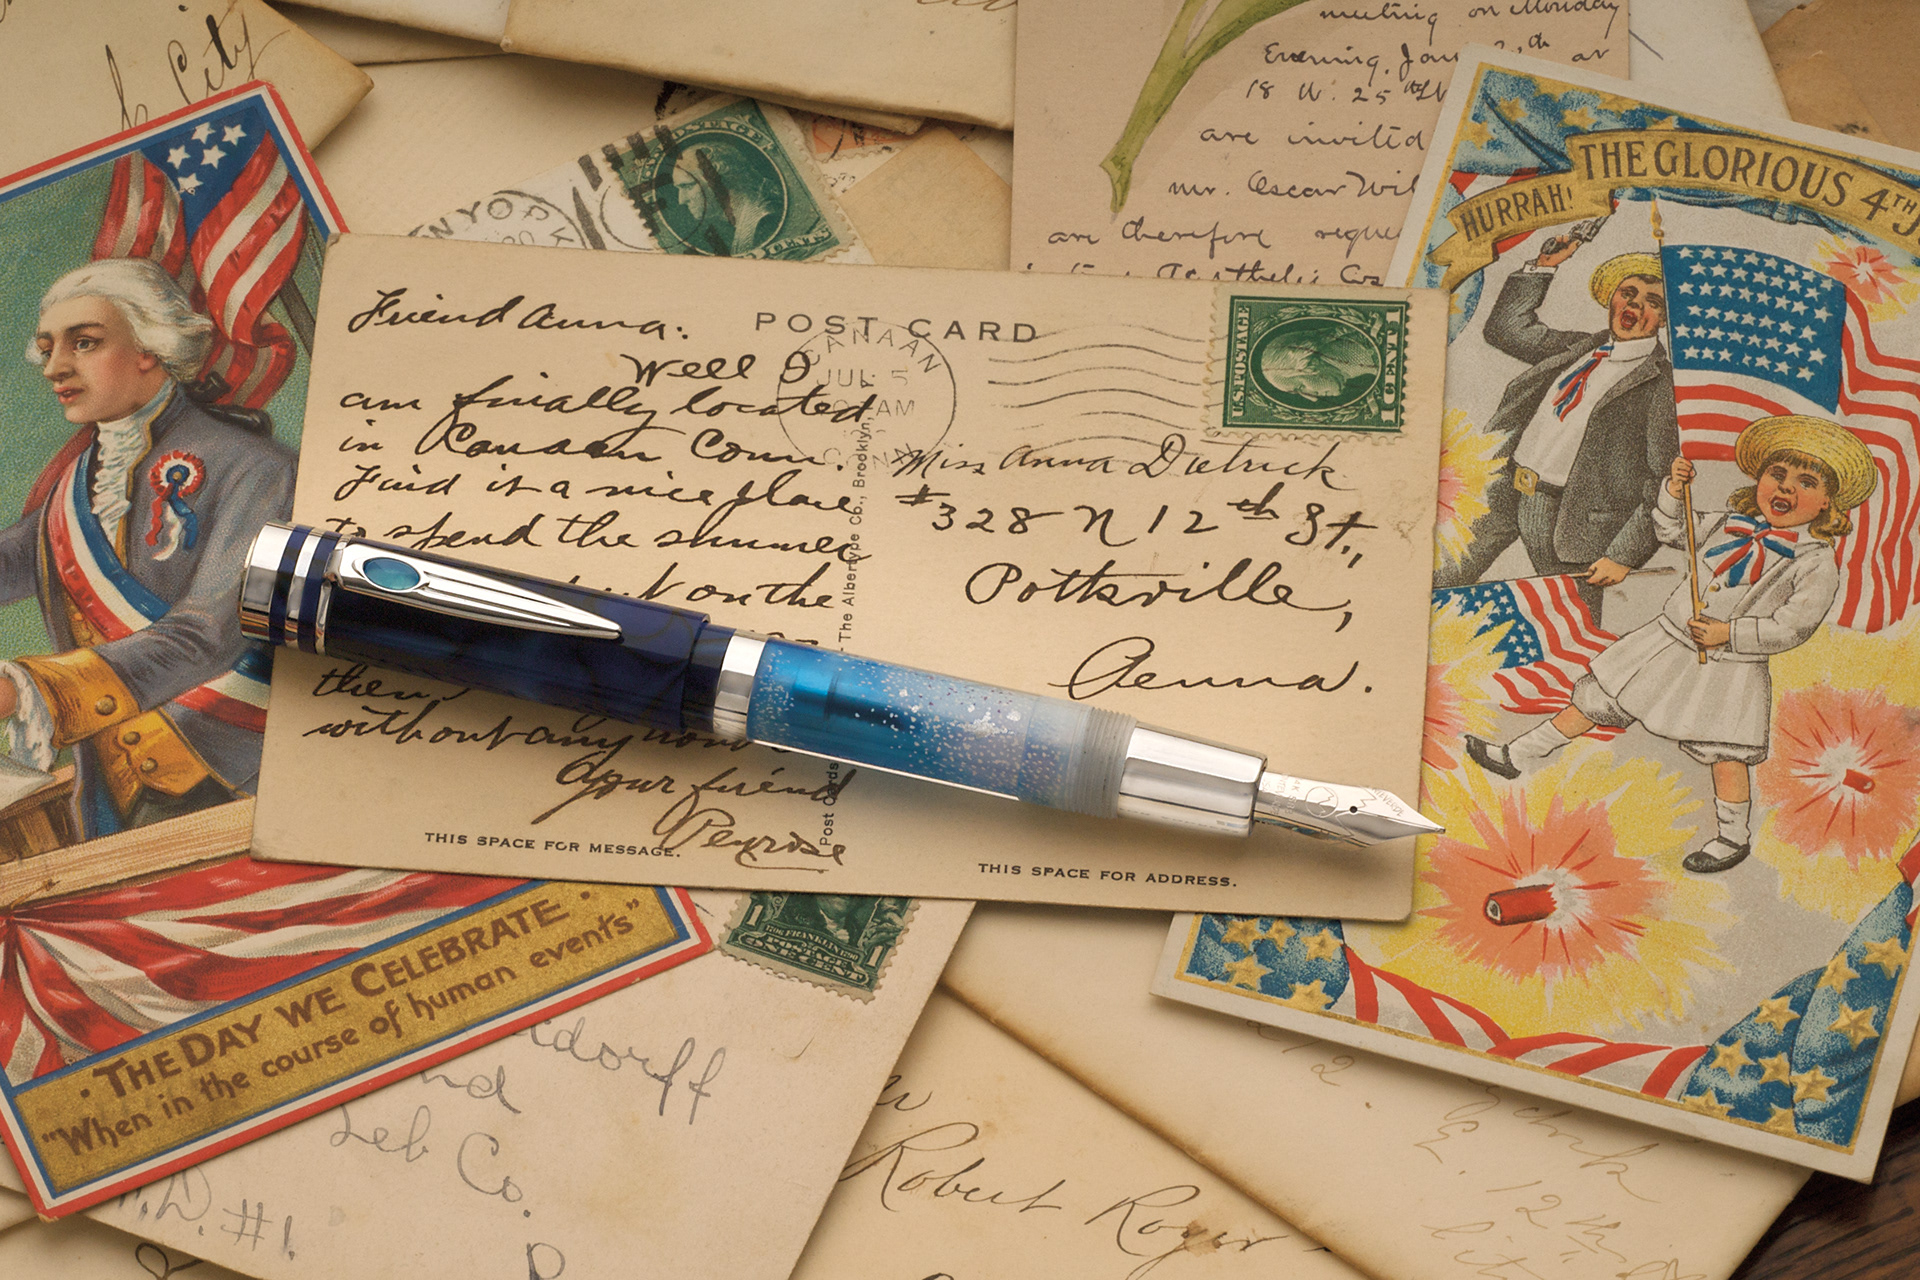 k City
meeting on Monday
Evening, Jan
18 W. 25th
are invited
Mr. Oscar Wil
are therefore reque
HURRAH! THE GLORIOUS 4TH
NEW YORK
POSTAGE
CENTS
POST CARD
CANAAN
JUL 5
AM
CONN.
U.S. POSTAGE
1 CENT 1
Friend Anna:
Well I
am finally located
in Canaan Conn.
Find it a nice place
to spend the summer
out on the
then
without any
Your friend
Penrose
THIS SPACE FOR MESSAGE.
Post Cards
The Albertype Co., Brooklyn,
Miss Anna Dietrick
#328 N 12th St.,
Pottsville,
Penna.
THIS SPACE FOR ADDRESS.
· THE DAY WE CELEBRATE ·
"When in the course of human events"
1 FRANKLIN 1
POSTAGE
ONE CENT
dorff
nd
Leb Co.
R.D. #1.
P
Robert Roger
12
E. 12th